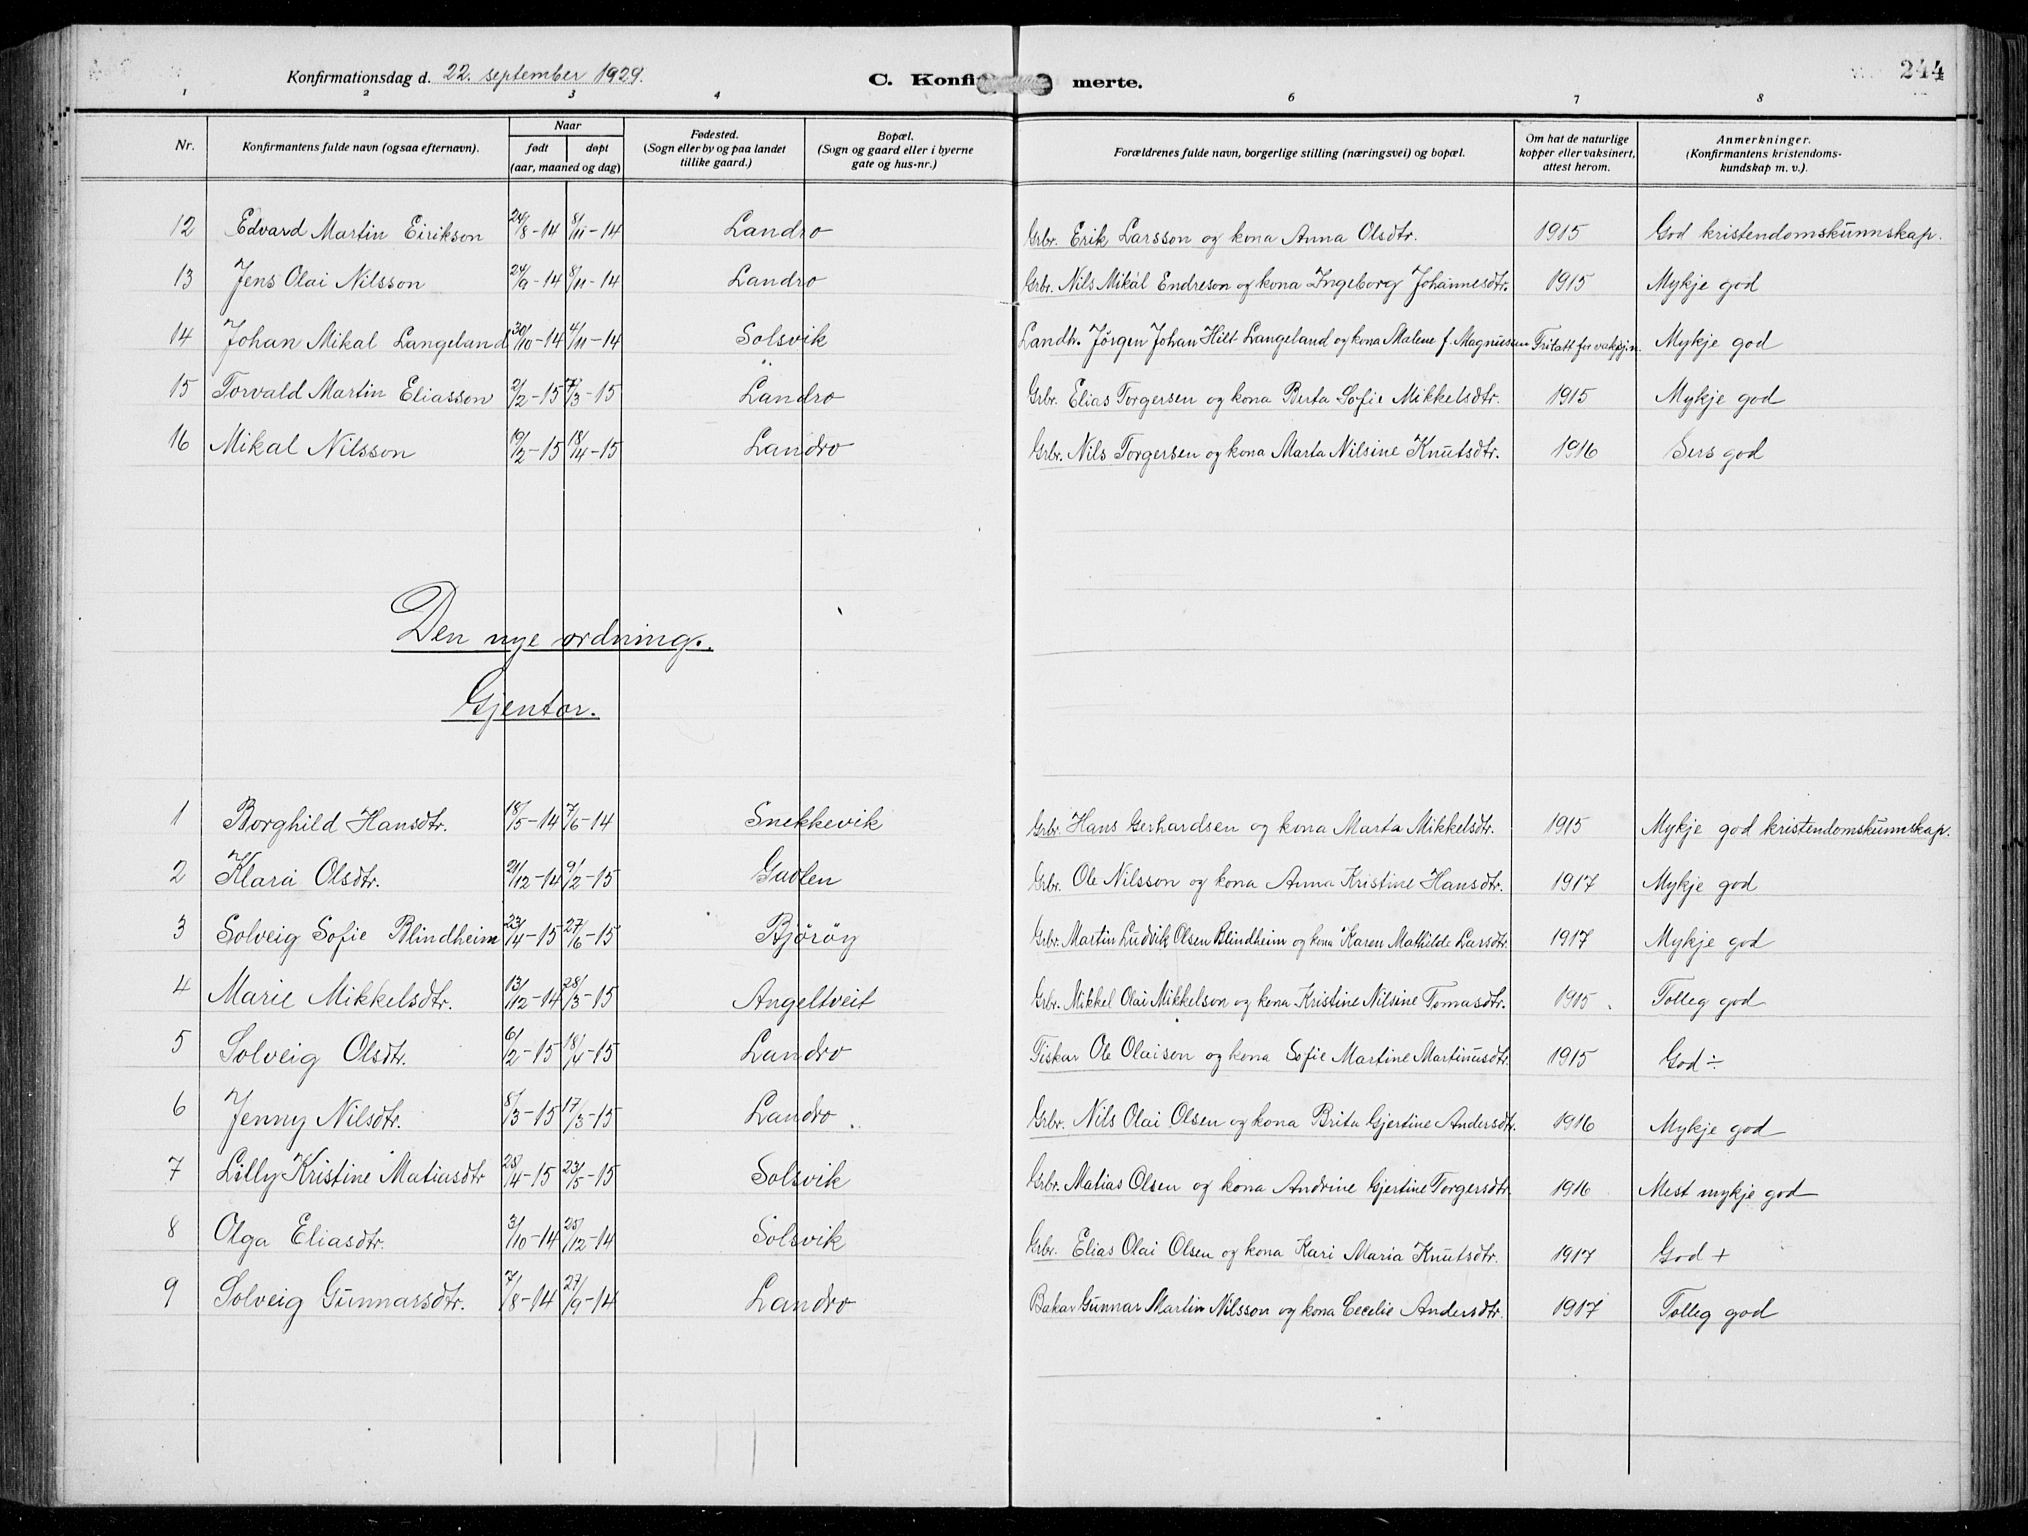 Konfirmationsdag d. 22. september 1929. C. Konfi merte. 244
1 2 3 4 6 7 8
Nr. Konfirmantens fulde navn (ogsaa efternavn). Naar født døpt (aar, maaned og dag) Fødested. (Sogn eller by og paa landet tillike gaard.) Bopæl. (Sogn og gaard eller i byerne gate og hus-nr.) Forældrenes fulde navn, borgerlige stilling (næringsvei) og bopæl. Om hat de naturlige kopper eller vaksinert, attest herom. Anmerkninger. (Konfirmantens kristendoms-kundskap m. v.).
12 Edvard Martin Eirikson 24/8-14 8/11-14 Landro Grbr. Erik Larsson og kona Anna Olsdtr. 1915 God kristendomskunnskap.
13 Jens Olai Nilsson 24/9-14 8/11-14 Landro Grbr. Nils Mikal Endreson og kona Ingeborg Johannesdtr. 1915 Mykje god
14 Johan Mikal Langeland 30/10-14 4/11-14 Solsvik Landh. Jørgen Johan Hilt Langeland og kona Malene f. Magnussen Fritatt for vaksin. Mykje god
15 Torvald Martin Eliasson 2/2-15 7/3-15 Landro Grbr. Elias Torgersen og kona Berta Sofie Mikkelsdtr. 1915 Mykje god
16 Mikal Nilsson 19/2-15 18/4-15 Landro Grbr. Nils Torgersen og kona Marta Nilsine Knutsdtr. 1916 Sers god
Den nye ordning.
Gjentor.
1 Borghild Hansdtr. 18/5-14 7/6-14 Snekkevik Grbr. Hans Gerhardsen og kona Marta Mikkelsdtr. 1915 Mykje god kristendomskunnskap.
2 Klara Olsdtr. 21/12-14 9/2-15 Grbr. Ole Nilsson og kona Anna Kristine Hansdtr. 1917 Mykje god
3 Solveig Sofie Blindheim 23/4-15 27/6-15 Bjørøy Grbr. Martin Ludvik Olsen Blindheim og kona Karen Mathilde Larsdtr. 1917 Mykje god
4 Marie Mikkelsdtr. 13/12-14 28/3-15 Angeltveit Grbr. Mikkel Olai Mikkelson og kona Kristine Nilsine Tomasdtr. 1915 Tolleg god
5 Solveig Olsdtr. 6/2-15 18/4-15 Landro Fiskar Ole Olaisen og kona Sofie Martine Martinusdtr 1915 God ÷
6 Jenny Nilsdtr. 8/3-15 17/3-15 Landro. Grbr. Nils Olai Olsen og kona Brita Gjertine Andersdtr. 1916 Mykje god
7 Lilly Kristine Matiasdtr 25/4-15 23/5-15 Solsvik Grbr. Matias Olsen og kona Andrine Gjertine Torgersdtr. 1916 Mest mykje god
8 Olga Eliasdtr. 3/10-14 25/12-14 Solsvik Grbr. Elias Olai Olsen og kona Kari Maria Knutsdtr. 1917 God +
9 Solveig Gunnarsdtr. 7/8-14 27/9-14 Landro Bakar Gunnar Martin Nilsson og kona Cecelie Andersdtr. 1917 Tolleg god